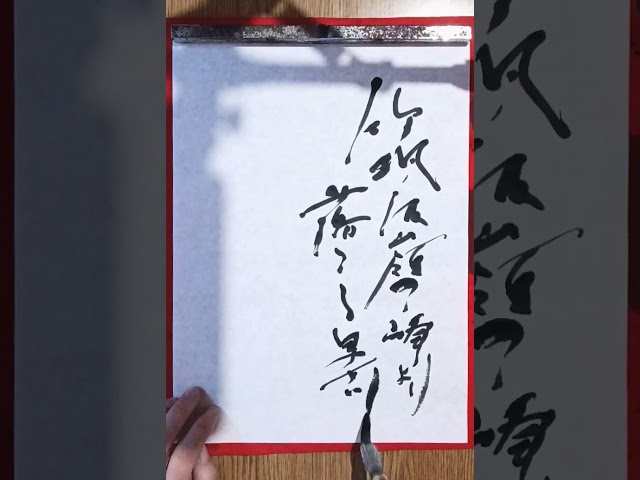 筑波嶺の峰より
落つる男女